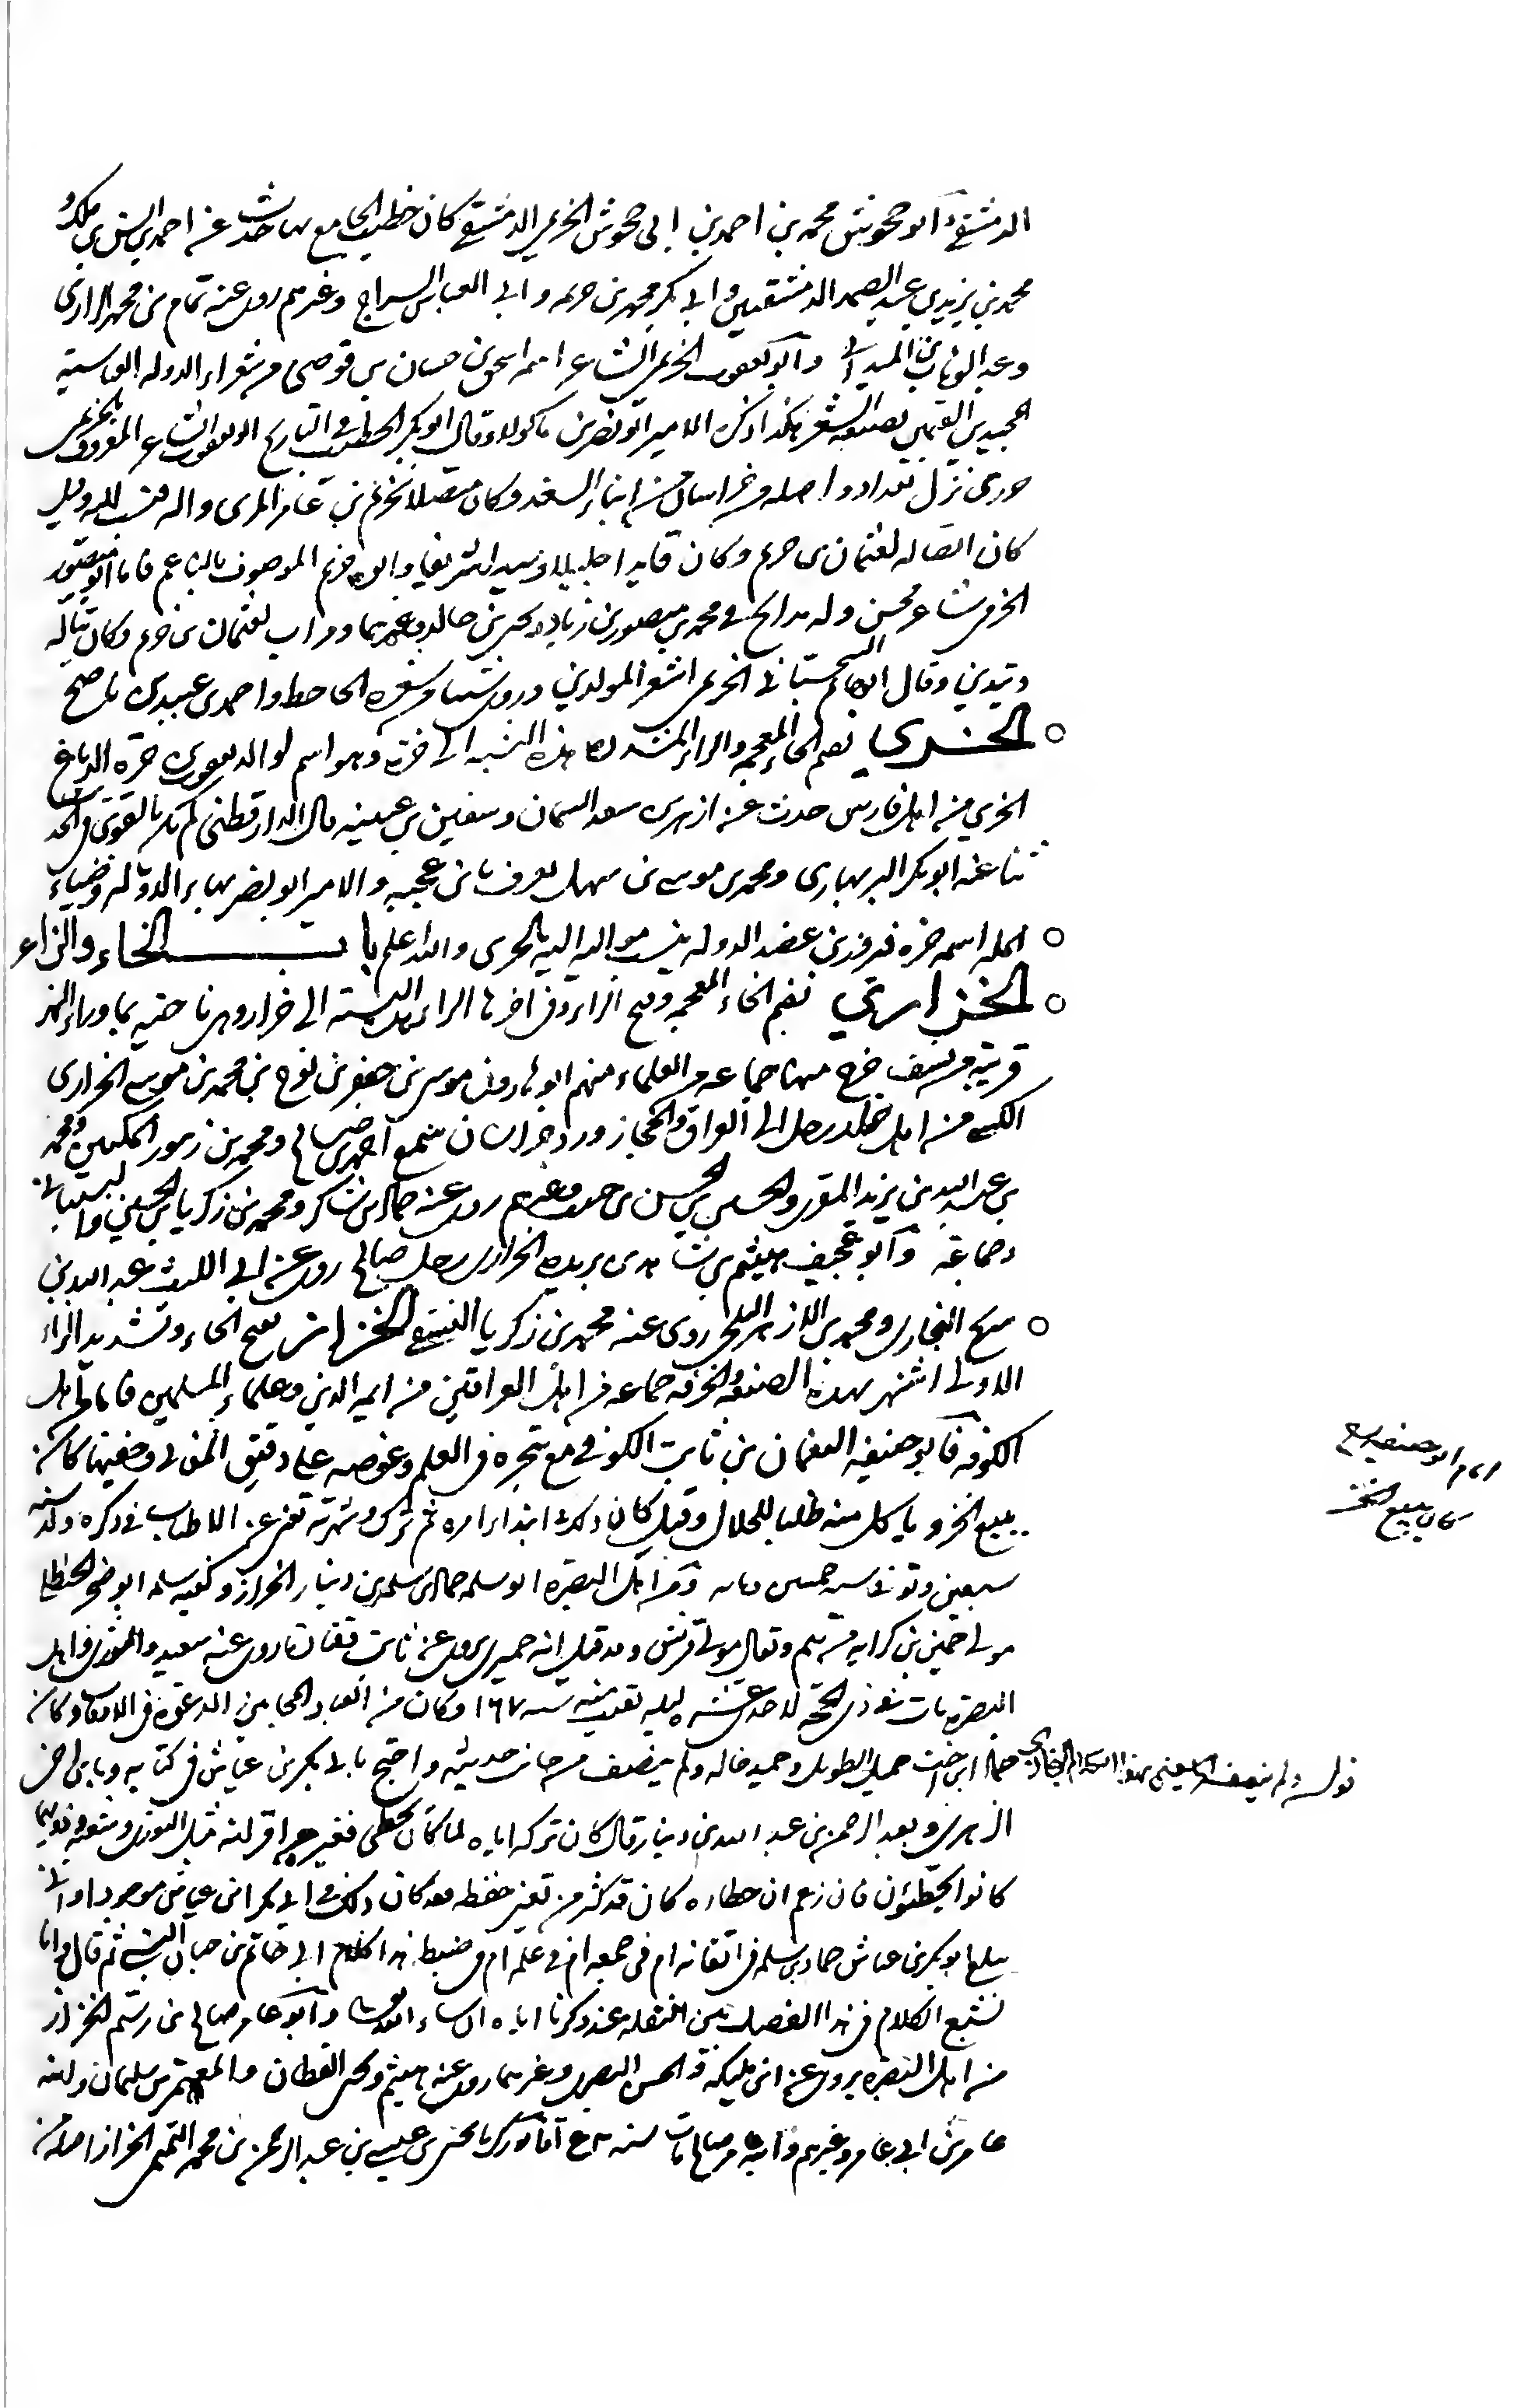 الدمشقي وابو جحوش محمد بن احمد بن ابي جحوش الخريمي الدمشقي كان خطيب الجامع بها حدث عن احمد بن انس بن ملك و
محمد بن يزيد بن عبد الصمد الدمشقيين وابي بكر محمد بن خريم وابي العباس السراج وغيرهم روى عنه تمام بن محمد الرازي
وعبد الوهاب الميداني وابو يعقوب الخريمي الشاعر اسمه اسحق بن حسان بن قوصى من شعراء الدولة العباسية
المجيدين القيمين بصنعة الشعر هكذا ذكره الامير ابو نصر بن ماكولا وقال ابو بكر الخطيب في التاريخ ابو يعقوب الشاعر المعروف بالخريمي
جزري نزل بغداد واصله من خراسان من ابناء السغد وكان متصلا بخريم بن عامر المري واله فنسب اليه وقيل
كان اتصاله بعثمان بن خريم وكان قايدا جليلا وسيدا شريفا وابوه خريم الموصوف بالناعم فاما ابو يعقوب
الخريمي شاعر محسن وله مدايح في محمد بن منصور بن زياد ويحيى بن خالد وغيرهما ومراث لعثمان بن خريم وكان يتاله
ويتدين وقال ابو حاتم السجستاني الخريمي اشعر المولدين وروى شيئا من شعره الجاحظ واحمد بن عبيد بن ناصح
الخري بضم الخاء المعجمة والراء المشددة هذه النسبة الى خرة وهو اسم لوالد يعقوب بن خرة الدباغ
الخري من اهل فارس حدث عن ازهر بن سعد السمان وسفين بن عيينة قال الدارقطني لم يكن بالقوي في الحديث
ثنا عنه ابو بكر البربهاري ومحمد بن موسى بن سهل يعرف بابن عجبه والامير ابو نصر بهاء الدولة وضياء
الملة اسمه خره فيروز بن عضد الدولة ينسب مواليه اليه بالخري والله اعلم باب الخاء والزاء
الخزاري بضم الخاء المعجمة وفتح الزاء وفي اخرها الراء هذه النسبة الى خزار وهي ناحية بما وراء النهر
قريبة من نسف خرج منها جماعة من العلماء منهم ابو هارون موسى بن جعفر بن نوح بن محمد بن موسى الخزاري
الكسي من اهل خزار رحل الى العراق والحجاز ورد خراسان سمع احمد بن صالح ومحمد بن زنبور المكيين ومحمد
بن عبد الله بن يزيد المقرئ والحسين بن الحسن بن حرب وغيرهم روى عنه حماد بن شاكر ومحمد بن زكريا بن الحسين النسفيان
وجماعة وابو عجيف هيثم بن شاهد بن بريدة الخزاري رجل صالح روى عن ابي الليث عبد الله بن
سريج البخاري ومحمد بن الازهر البلخي روى عنه محمد بن زكريا النسفي الخزاز بفتح الخاء وتشديد الزاء
الاولى اشتهر بهذه الصنعة والحرفة جماعة من اهل العراقين من ايمة الدين وعلماء المسلمين فاما من اهل
الكوفة فابو حنيفة النعمان بن ثابت الكوفي مع تبحره في العلم وغوصه على دقيق المعاني وخفيتها كان
يبيع الخز وياكل منه طلبا للحلال وقيل كان ذلك ابتداء امره ثم ترك وشهرته تغني عن الاطناب في ذكره ولد سنة
سبعين وتوفي سنة خمسين ومايه ومن اهل البصرة ابو سلمة حماد بن سلمة بن دينار الخزاز وكنيته سلمة ابو صخر الحنظلي
مولى حميري بن كرابة من تميم ويقال مولى قريش وقد قيل انه حميري يروي عن ثابت وقتادة روى عنه شعبة والثوري واهل
البصرة مات في ذي الحجة لاحد عشرة ليلة بقيت منه سنة ١٦٧ وكان من العباد المجابين الدعوة في الاوقات وكان
حماد ابن اخت حميد الطويل وحميد خاله ولم ينصف من جانب حديثه واحتج بابي بكر بن عياش في كتابه وبابن اخي
الزهري وبعبد الرحمن بن عبد الله بن دينار قال كان تركه اياه لما كان يخطئ فغيره من اقرانه مثل الثوري وشعبة وذويهما
كانوا يخطئون فان زعم ان خطاءه كان قد كثر من تغير حفظه فقد كان ذلك في ابي بكر ابن عياش موجودا وانى
يبلغ ابو بكر بن عياش حماد بن سلمة في اتقانه ام في جمعه ام في علمه ام في ضبطه هذا كلام ابي حاتم بن حبان البستي ثم قال وانا
نشبع الكلام في هذا الفصل بين النقلة عند ذكرنا اياه ان شاء الله وابو عامر صالح بن رستم الخزاز
من اهل البصرة يروي عن ابن ابي مليكة والحسن البصري وغيرهما روى عنه هيثم ويحيى القطان والمعتمر بن سليمان وابنه
عامر بن ابي عامر وغيرهم وابو عامر صالح مات سنة واما ابو زكريا يحيى بن عيسى بن عبد الرحمن بن محمد التميمي الخزاز اصله من
امام ابو حنيفة رح
كان يبيع الخز
قوله ولم ينصف الخ يعني بهذا الكلام البخاري